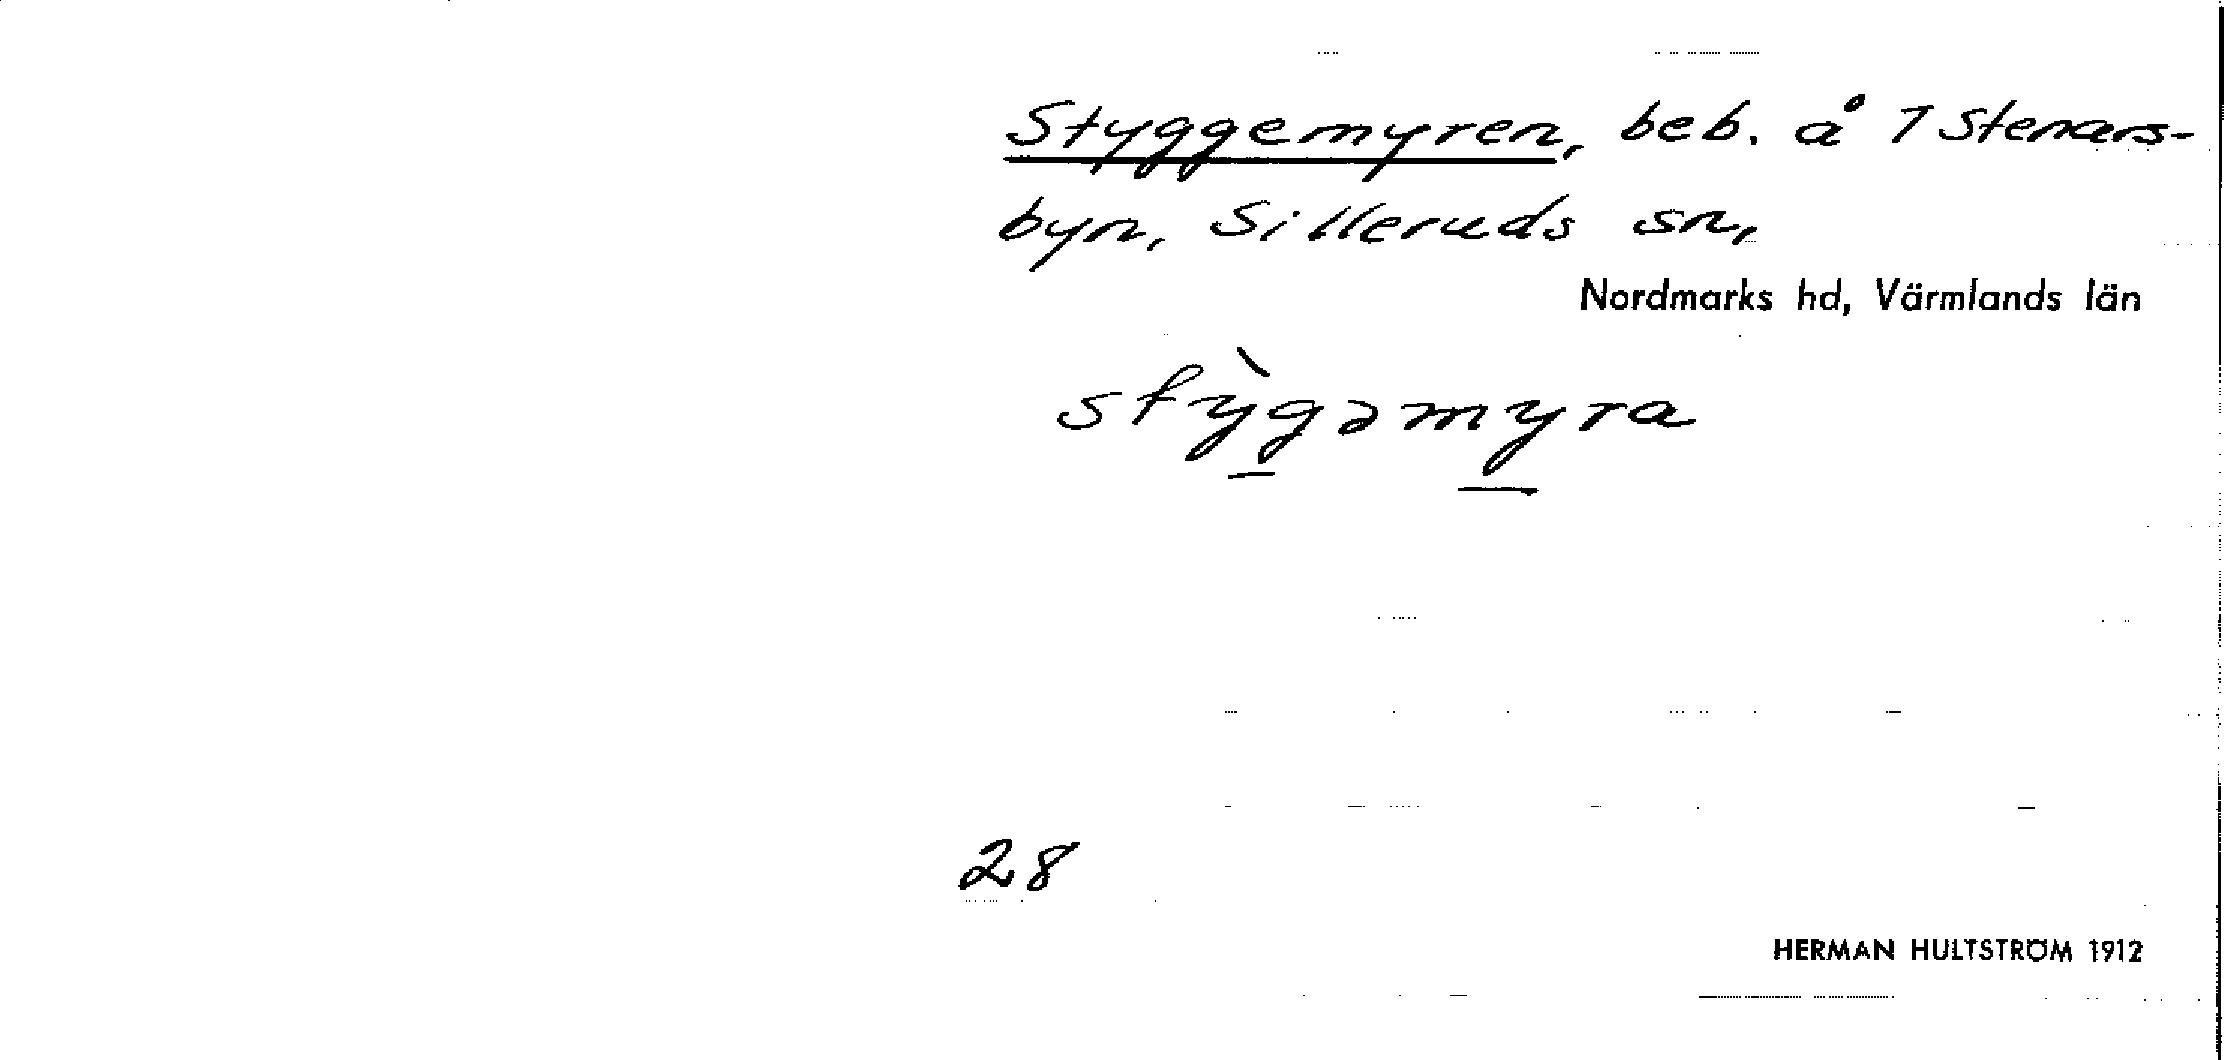 Styggemyren, beb. å 7 Stenars-
byn, Silleruds sn,
Nordmarks hd, Värmlands län
stỳgəmyra
28
HERMAN HULTSTRÖM 1912